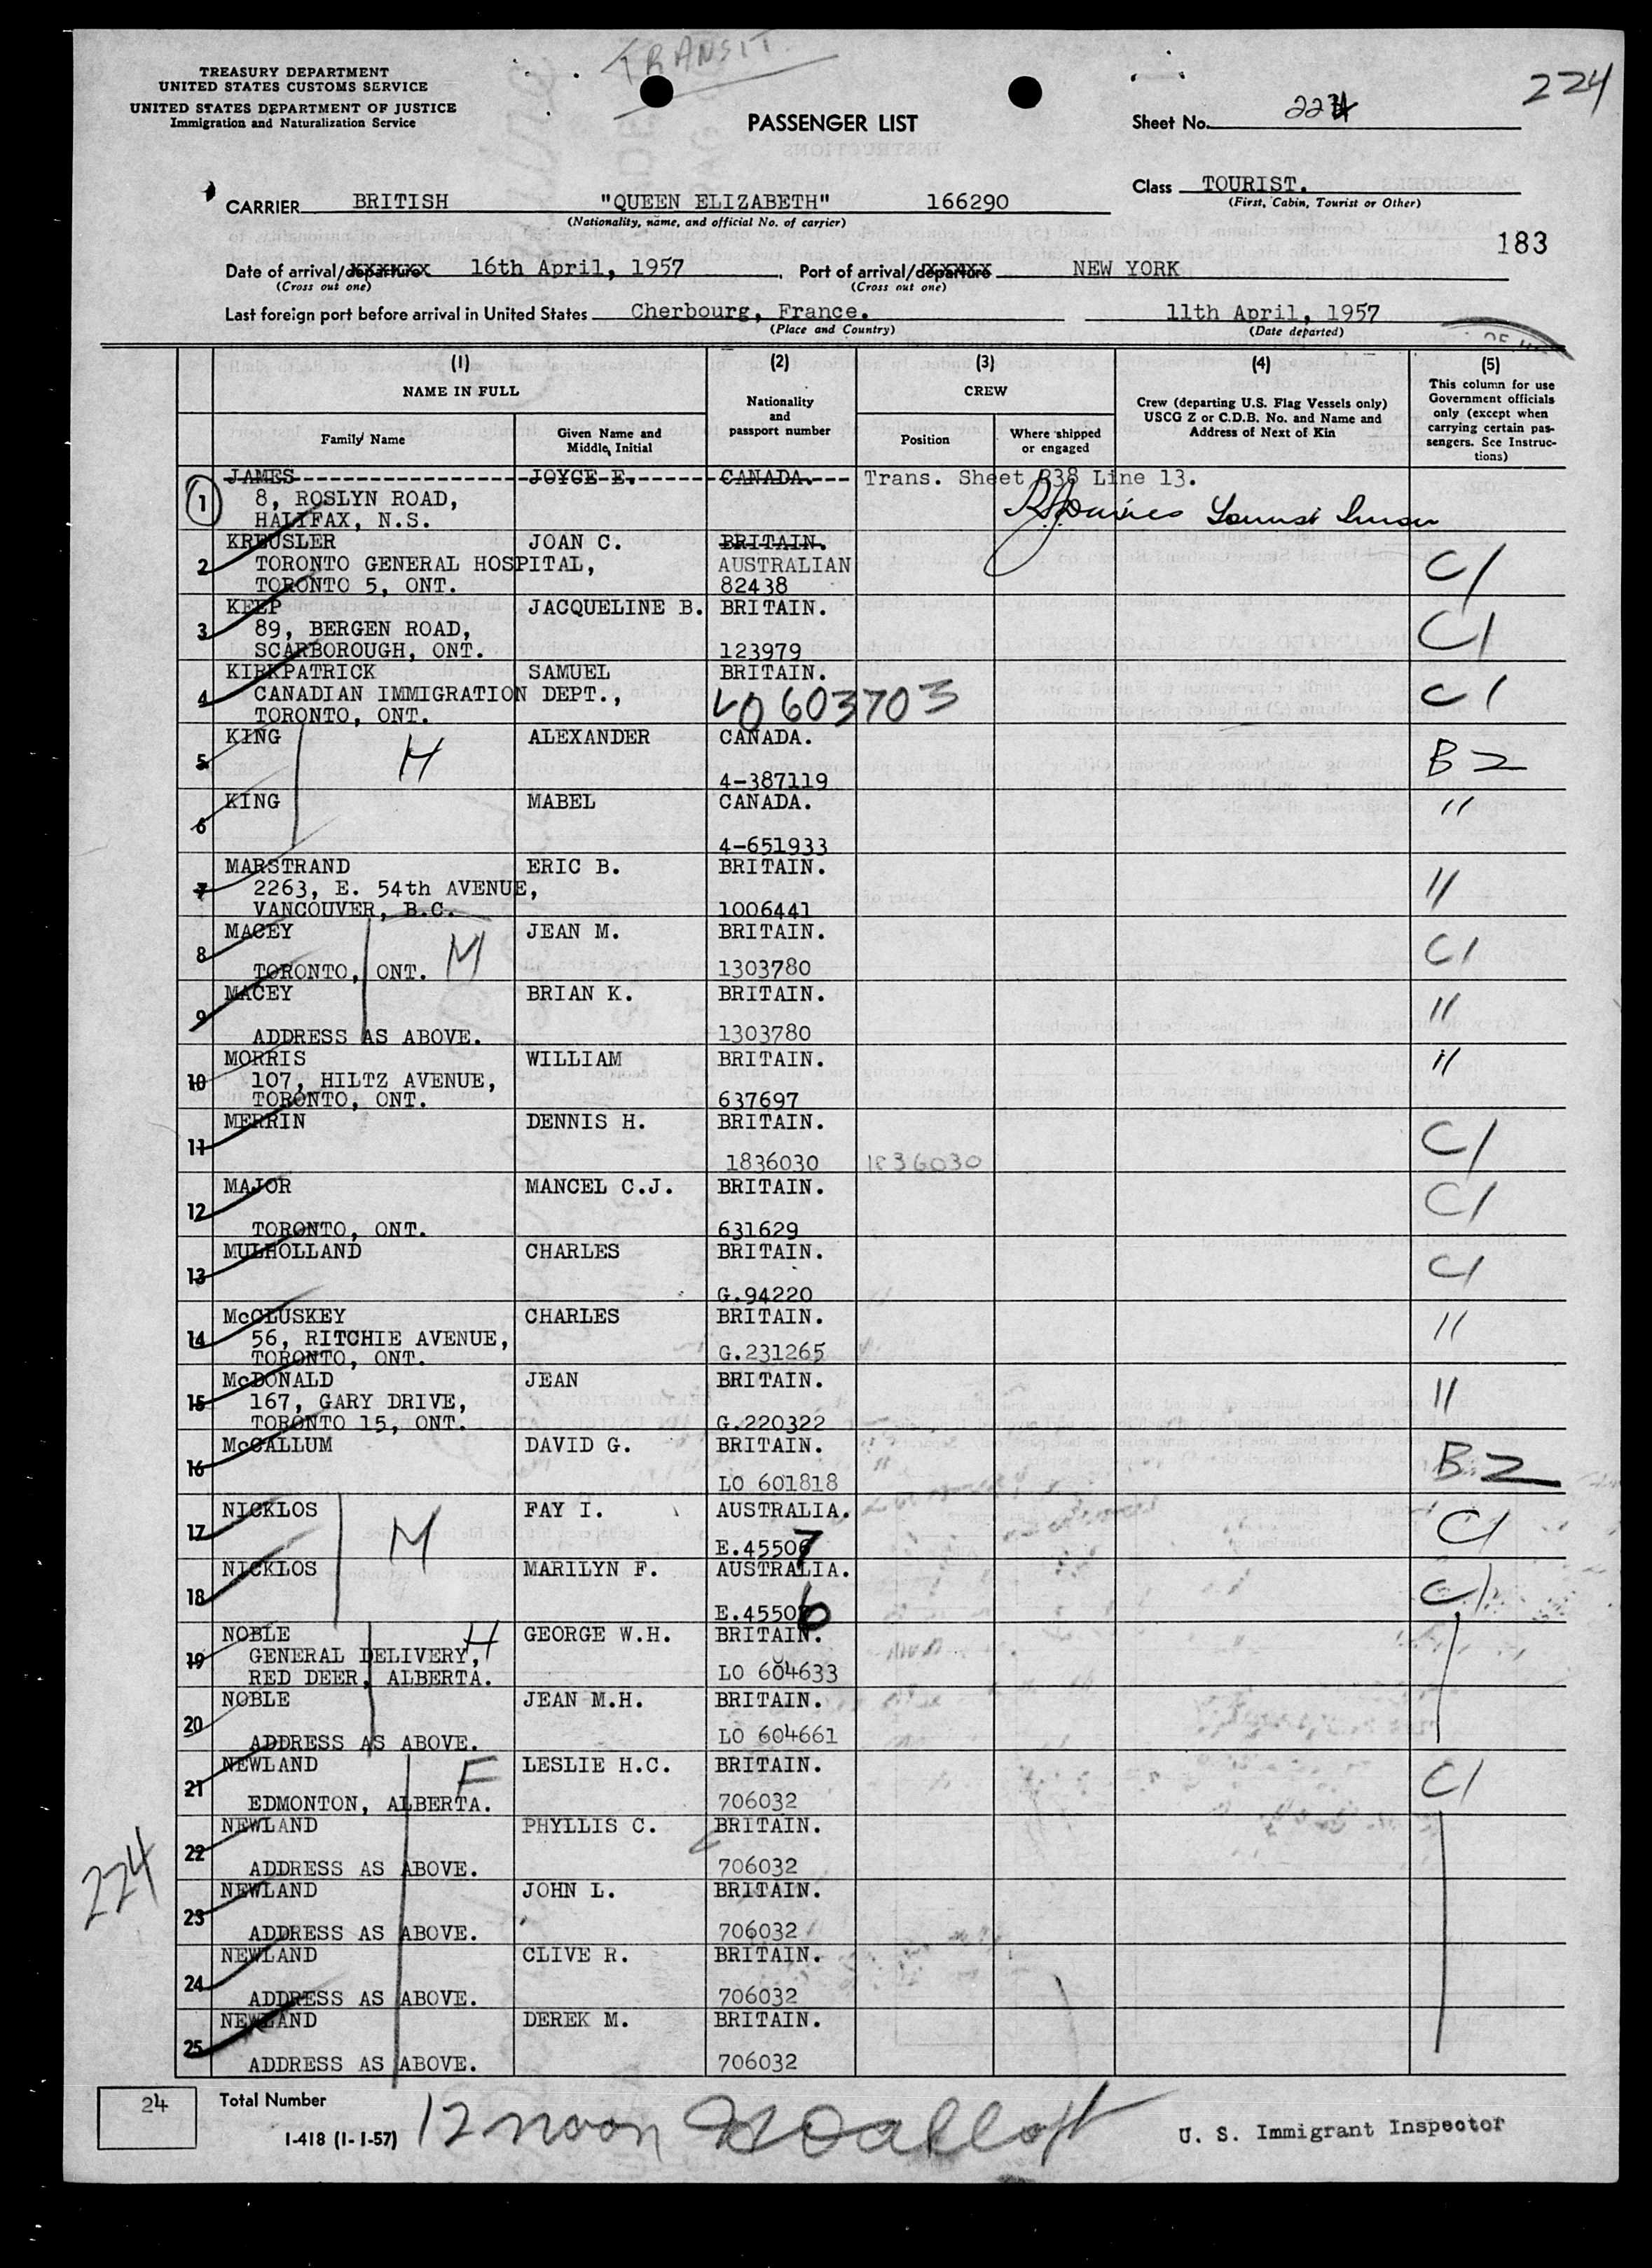 TRANSIT.
TREASURY DEPARTMENT
UNITED STATES CUSTOMS SERVICE
UNITED STATES DEPARTMENT OF JUSTICE
Immigration and Naturalization Service
PASSENGER LIST
Sheet No. 224
224
Class TOURIST.
(First, Cabin, Tourist or Other)
CARRIER BRITISH "QUEEN ELIZABETH" 166290
(Nationality, name, and official No. of carrier)
183
Date of arrival/departure 16th April, 1957. Port of arrival/departure NEW YORK
(Cross out one) (Cross out one)
Last foreign port before arrival in United States Cherbourg, France. 11th April, 1957
(Place and Country) (Date departed)
(1) (2) (3) (4) (5)
NAME IN FULL
Nationality and passport number
CREW
Crew (departing U.S. Flag Vessels only) USCG Z or C.D.B. No. and Name and Address of Next of Kin
This column for use Government officials only (except when carrying certain passengers. See Instructions)
Family Name Given Name and Middle Initial Position Where shipped or engaged
1 JAMES JOYCE E. CANADA. Trans. Sheet B38 Line 13.
8, ROSLYN ROAD,
HALIFAX, N.S.
KREUSLER JOAN C. BRITAIN.
2 TORONTO GENERAL HOSPITAL, AUSTRALIAN C1
TORONTO 5, ONT. 82438
KEEP JACQUELINE B. BRITAIN.
3 89, BERGEN ROAD, C1
SCARBOROUGH, ONT. 123979
KIRKPATRICK SAMUEL BRITAIN.
4 CANADIAN IMMIGRATION DEPT., LO 603703 C1
TORONTO, ONT.
KING ALEXANDER CANADA.
5 H B2
4-387119
KING MABEL CANADA. "
6
4-651933
MARSTRAND ERIC B. BRITAIN.
7 2263, E. 54th AVENUE, "
VANCOUVER, B.C. 1006441
MACEY JEAN M. BRITAIN.
8 M C1
TORONTO, ONT. 1303780
MACEY BRIAN K. BRITAIN.
9 "
ADDRESS AS ABOVE. 1303780
MORRIS WILLIAM BRITAIN. "
10 107, HILTZ AVENUE,
TORONTO, ONT. 637697
MERRIN DENNIS H. BRITAIN.
11 C1
1836030 1836030
MAJOR MANCEL C.J. BRITAIN.
12 C1
TORONTO, ONT. 631629
MULHOLLAND CHARLES BRITAIN.
13 C1
G.94220
McCLUSKEY CHARLES BRITAIN.
14 56, RITCHIE AVENUE, "
TORONTO, ONT. G.231265
McDONALD JEAN BRITAIN.
15 167, GARY DRIVE, "
TORONTO 15, ONT. G.220322
McCALLUM DAVID G. BRITAIN.
16 B2
LO 601818
NICKLOS FAY I. AUSTRALIA.
17 M C1
E.45507
NICKLOS MARILYN F. AUSTRALIA.
18 C1
E.45506
NOBLE H GEORGE W.H. BRITAIN.
19 GENERAL DELIVERY,
RED DEER, ALBERTA. LO 604633
NOBLE JEAN M.H. BRITAIN.
20
ADDRESS AS ABOVE. LO 604661
NEWLAND LESLIE H.C. BRITAIN.
21 F C1
EDMONTON, ALBERTA. 706032
NEWLAND PHYLLIS C. BRITAIN.
22
ADDRESS AS ABOVE. 706032
224
NEWLAND JOHN L. BRITAIN.
23
ADDRESS AS ABOVE. 706032
NEWLAND CLIVE R. BRITAIN.
24
ADDRESS AS ABOVE. 706032
NEWLAND DEREK M. BRITAIN.
25
ADDRESS AS ABOVE. 706032
24 Total Number
I-418 (1-1-57) 12 noon
U. S. Immigrant Inspector